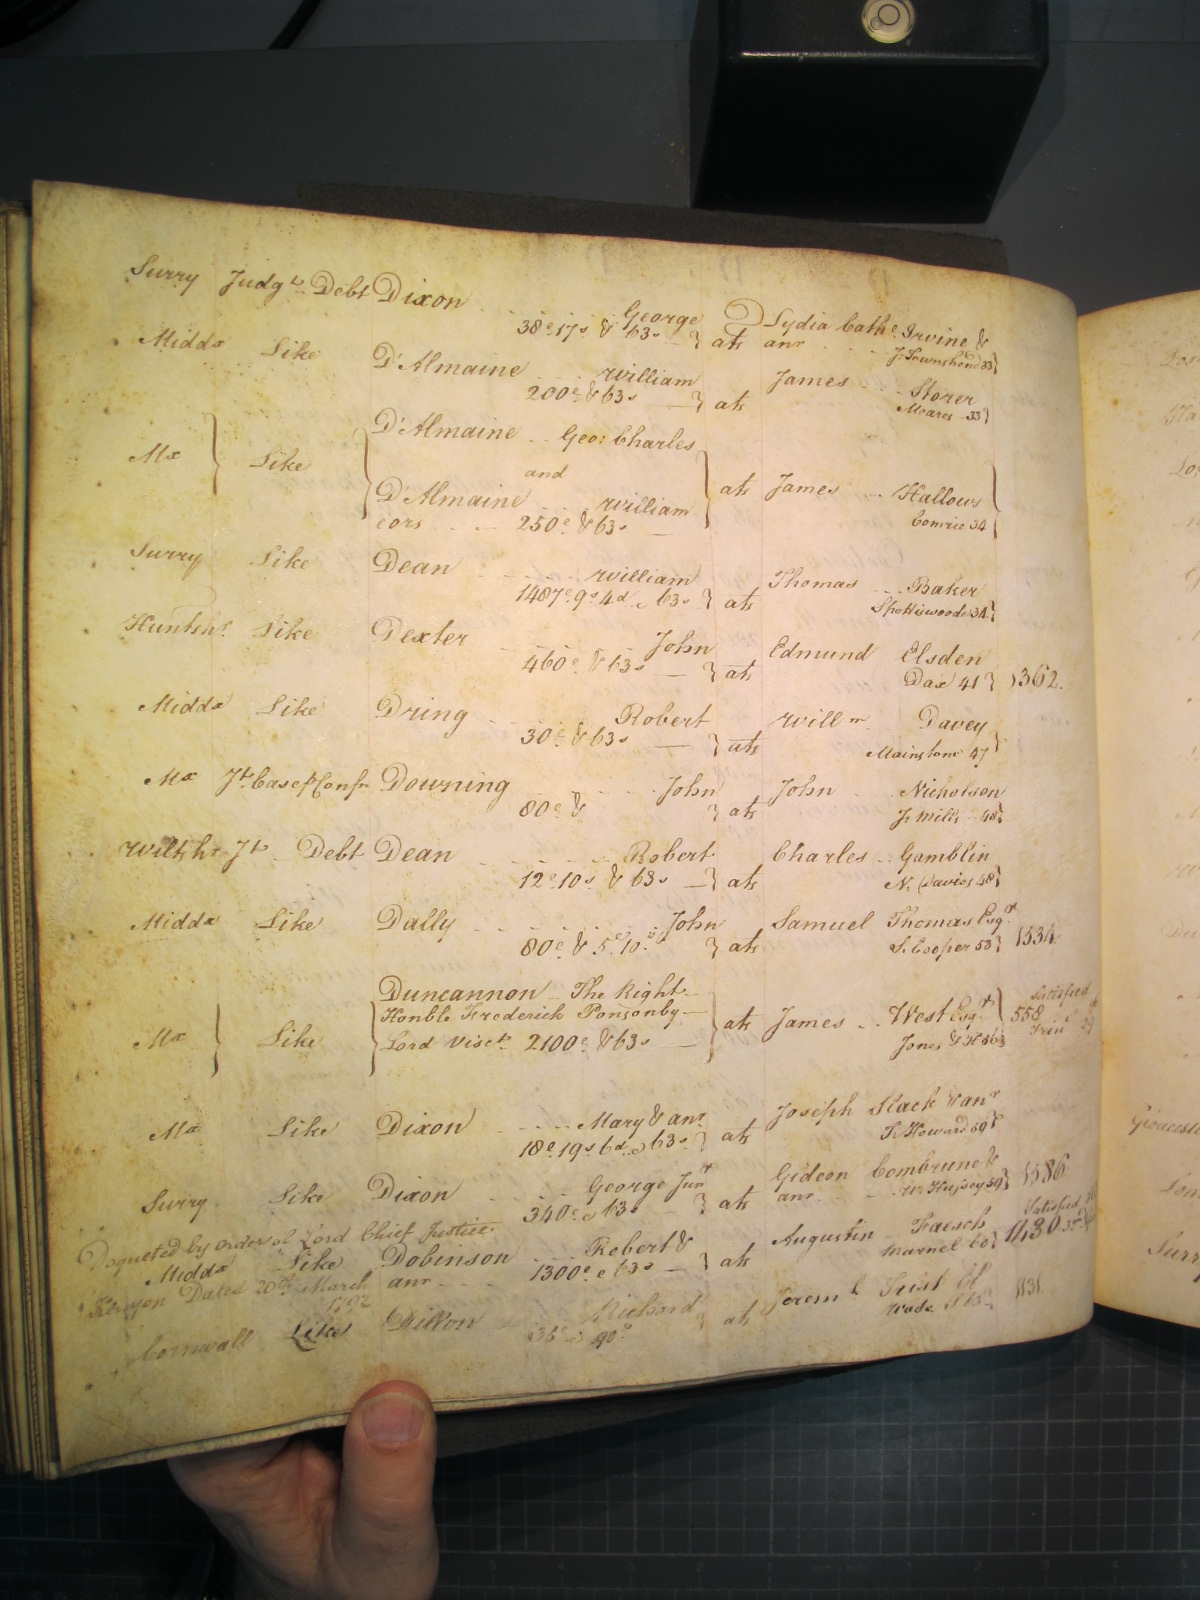 Surry Judgt Debt Dixon George
38£ 17s & 63s } ats Lydia Cathe Irvine & anr J. Townshend 33}
Midds Like D'Almaine William
200£ & 63s } ats James Storer
Meares 33}
D'Almaine Geo: Charles
Mx } Like and
D'Almaine William } ats James Hallows
cors 250£ & 63s Comrie 34
Surry Like Dean William
1487£ 9s 4d & 63s } ats Thomas Baker
Spottiswoode 34}
Huntshr Like Dexter John
460£ & 63s } ats Edmund Elsden
Dax 41} 1362.
Midds Like Dring Robert
30£ & 63s } ats Willm Davey
Mainstone 47}
Mx Jt Case p Confn Downing John
80£ & } ats John Nicholson
J. Mills 48}
Wiltshr Jt Debt Dean Robert
12£ 10s & 63s } ats Charles Gamblin
N. Davies 48}
Midds Like Dally John
80£ & 5£ 10s } ats Samuel Thomas Esqr
S. Cooper 53} 1534
Duncannon The Right
Honble Frederick Ponsonby
Mx } Like Lord Visct 2100£ & 63s } ats James West Esqr
Jones & H 56} 558 Satisfied
Mx Like Dixon Mary & anr
18£ 19s 6d & 63s } ats Joseph Slack & anr
T. Howard 59}
Surry Like Dixon George Junr
340£ & 63s } ats Gideon Combrune &
anr Wm Hussey 59} 1586
Doqueted by order of Lord Chief Justice
Midds Like Dobinson Robert &
anr 1300£ & 63s } ats Augustin Faesch
Marnel 60} 1130 Satisfied
Kenyon Dated 20th March
1792
Cornwall Like Dillon Richard
ats Jereml 1131